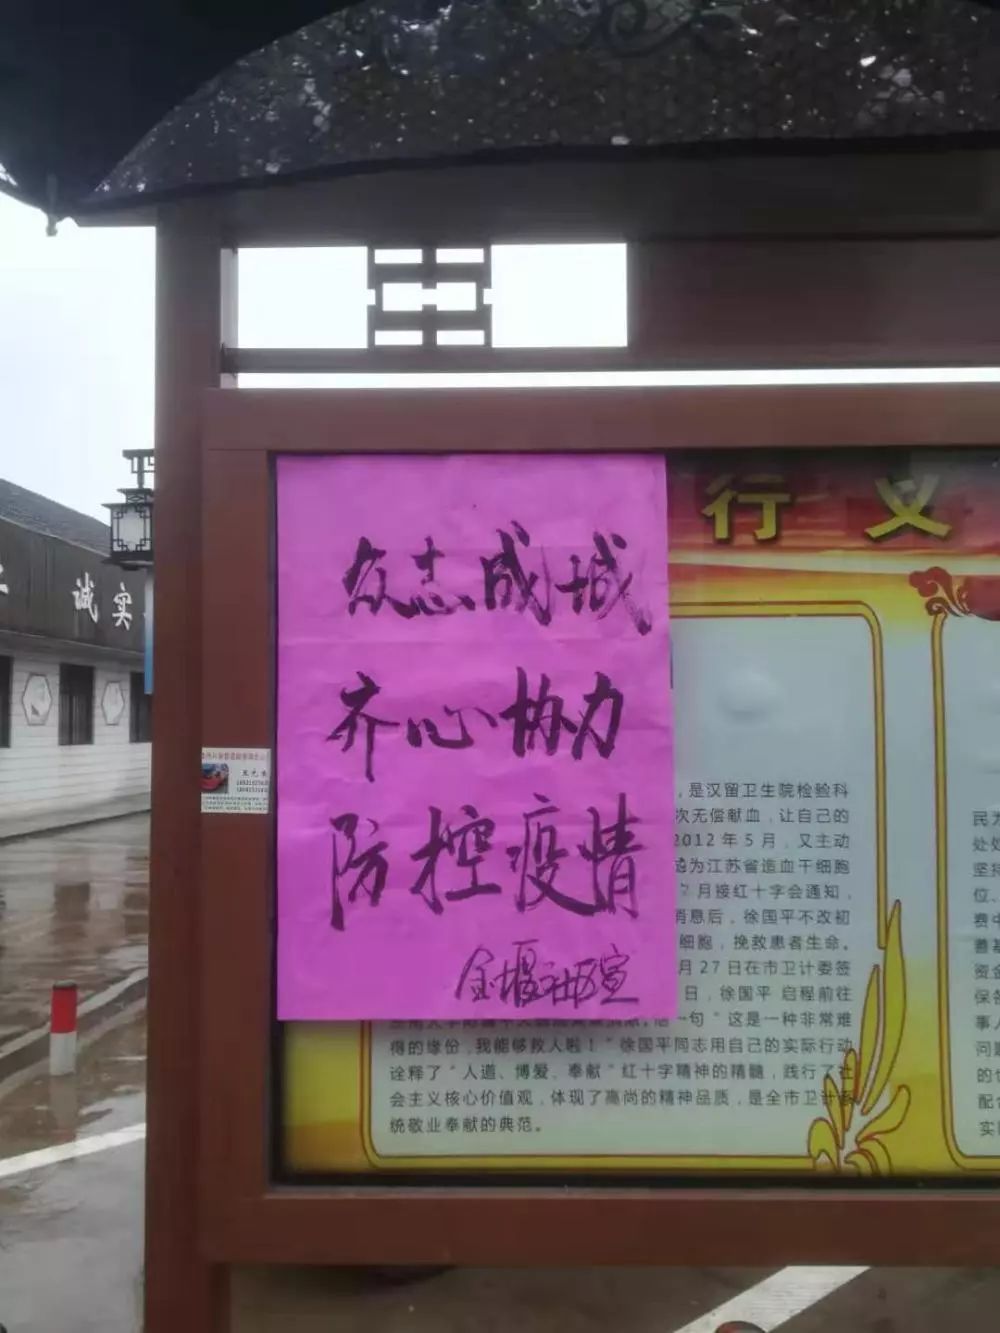 众志成城
齐心协力
防控疫情
行 义
诚实
，是汉留卫生院检验科
次无偿献血，让自己的
2012年5月，又主动
为江苏省造血干细胞
月接红十字会通知，
消息后，徐国平不改初
细胞，挽救患者生命。
月27日在市卫计委签
日，徐国平 启程前往
一句“这是一种非常难
得的缘份，我能够救人啦！”徐国平同志用自己的实际行动
诠释了“人道、博爱、奉献”红十字精神的精髓，践行了社
会主义核心价值观，体现了高尚的精神品质，是全市卫计系
统敬业奉献的典范。
民
处处
坚持
位、
赛中
善基
资金
保
事
问题
的
配合
实